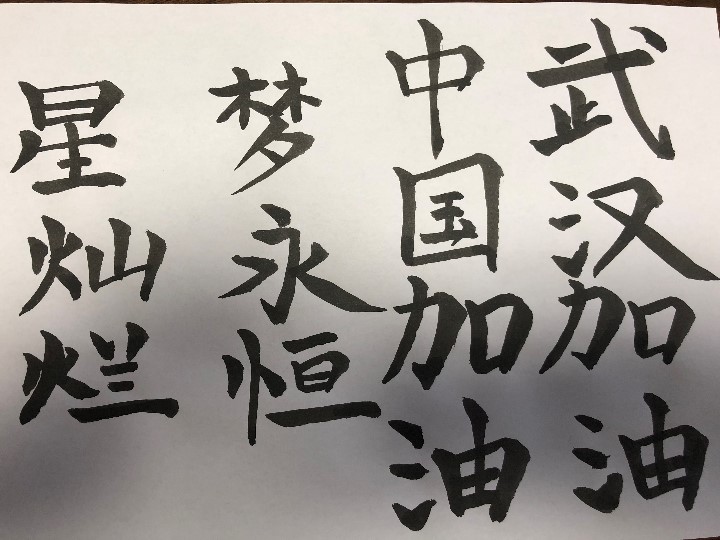 武汉加油
中国加油
梦永恒
星灿烂